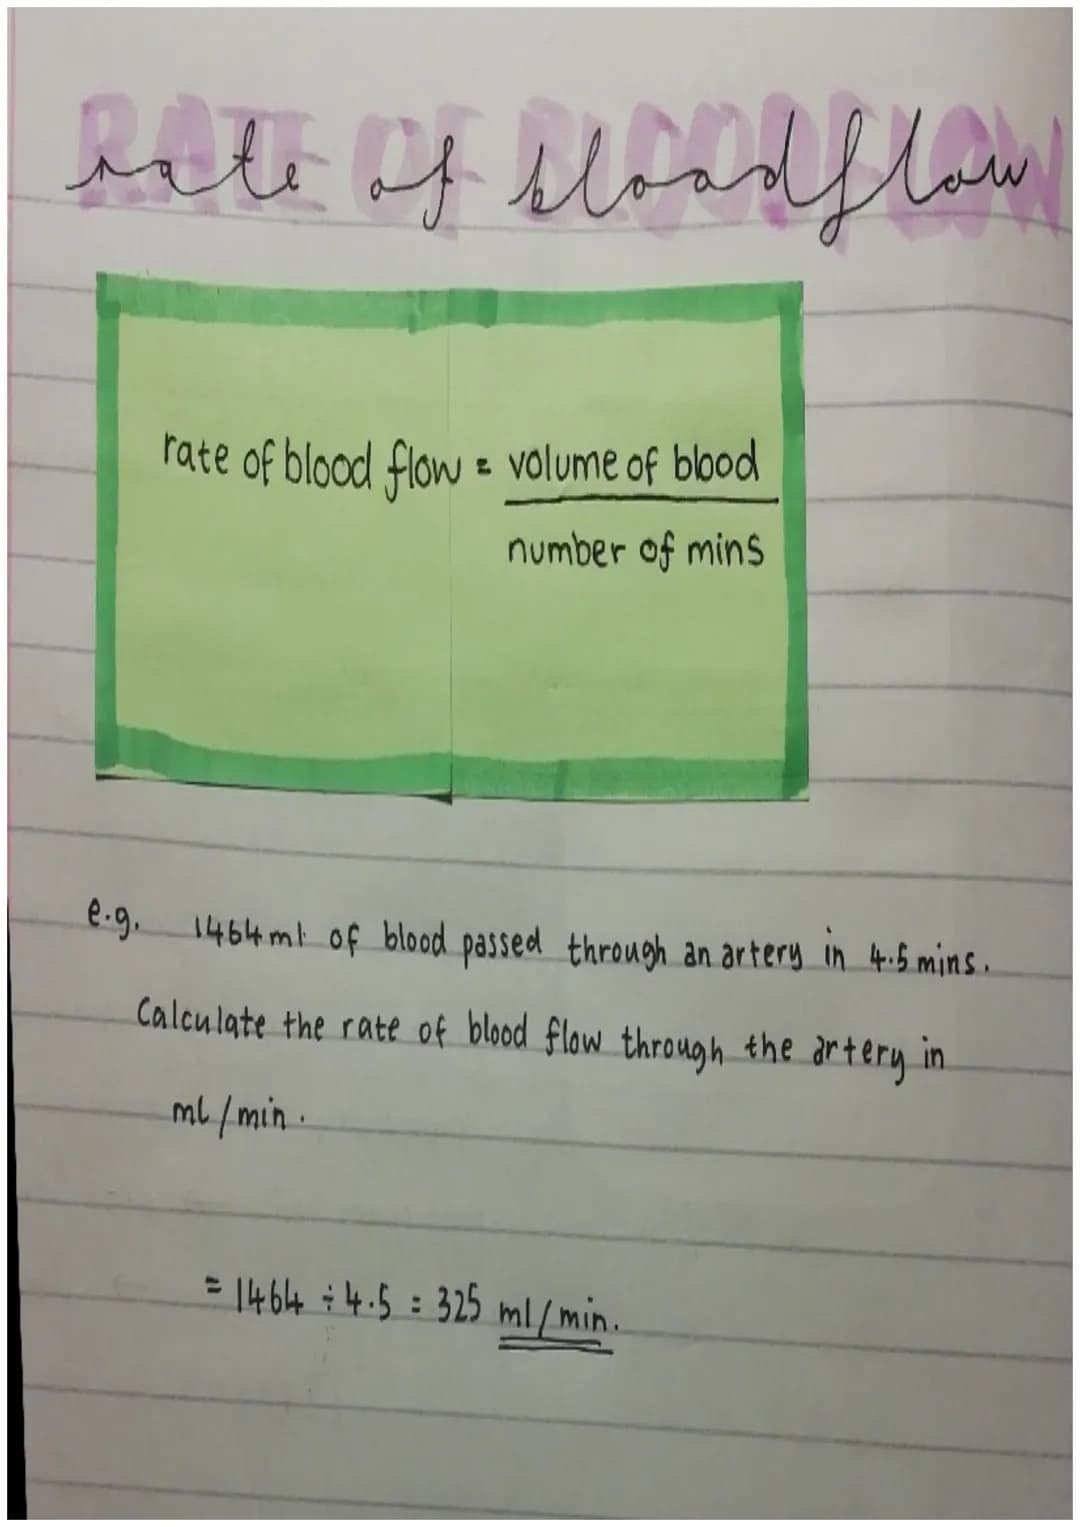 RATE OF BLOODFLOW
rate of bloodflow
rate of blood flow = volume of blood
number of mins
e.g. 1464ml of blood passed through an artery in 4.5 mins.
Calculate the rate of blood flow through the artery in
ml/min.
= 1464 ÷ 4.5 = 325 ml/min.